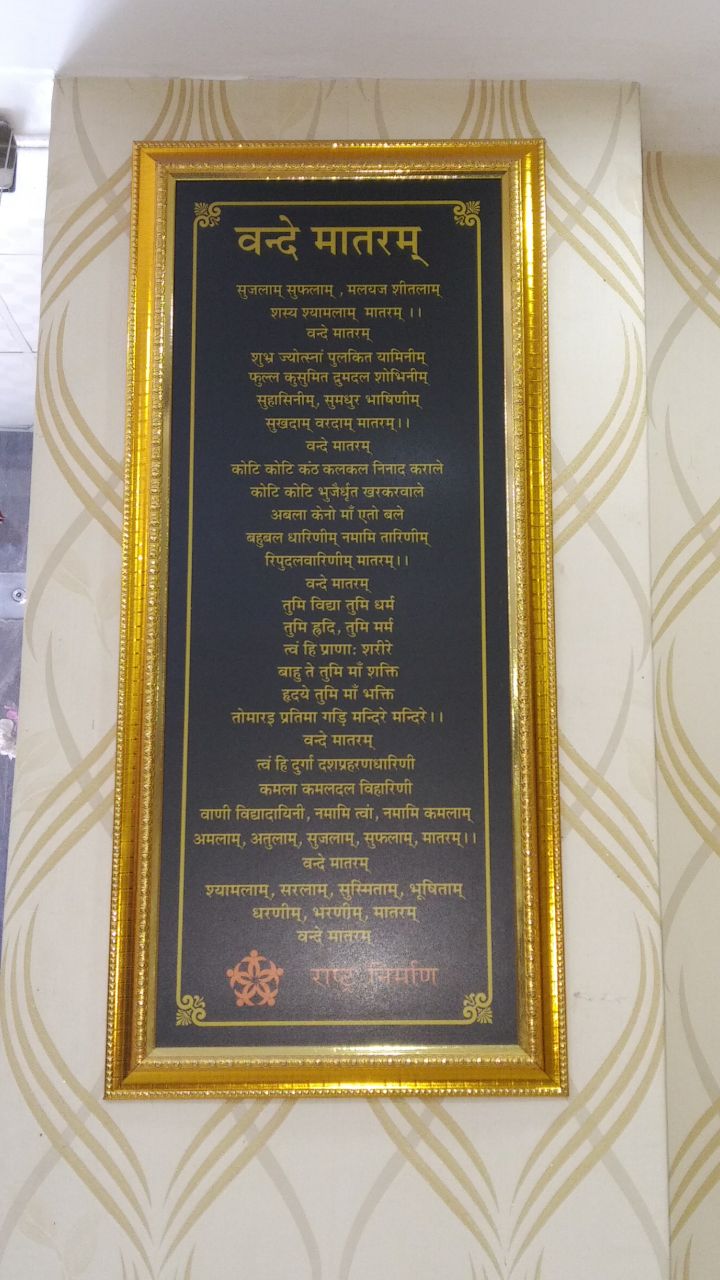 वन्दे मातरम्
सुजलाम् सुफलाम् , मलयज शीतलाम्
शस्य श्यामलाम् मातरम् ।।
वन्दे मातरम्
शुभ्र ज्योत्स्नां पुलकित यामिनीम्
फुल्ल कुसुमित द्रुमदल शोभिनीम्
सुहासिनीम्, सुमधुर भाषिणीम्
सुखदाम् वरदाम् मातरम्।।
वन्दे मातरम्
कोटि कोटि कंठ कलकल निनाद कराले
कोटि कोटि भुजैर्धृत खरकरवाले
अबला केनो माँ एतो बले
बहुबल धारिणीम् नमामि तारिणीम्
रिपुदलवारिणीम् मातरम्।।
वन्दे मातरम्
तुमि विद्या तुमि धर्म
तुमि ह्रदि, तुमि मर्म
त्वं हि प्राणाः शरीरे
बाहु ते तुमि माँ शक्ति
हृदये तुमि माँ भक्ति
तोमारइ प्रतिमा गड़ि मन्दिरे मन्दिरे।।
वन्दे मातरम्
त्वं हि दुर्गा दशप्रहरणधारिणी
कमला कमलदल विहारिणी
वाणी विद्यादायिनी, नमामि त्वां, नमामि कमलाम्
अमलाम्, अतुलाम्, सुजलाम्, सुफलाम्, मातरम्।।
वन्दे मातरम्
श्यामलाम्, सरलाम्, सुस्मिताम्, भूषिताम्
धरणीम्, भरणीम्, मातरम्
वन्दे मातरम्
राष्ट्र निर्माण